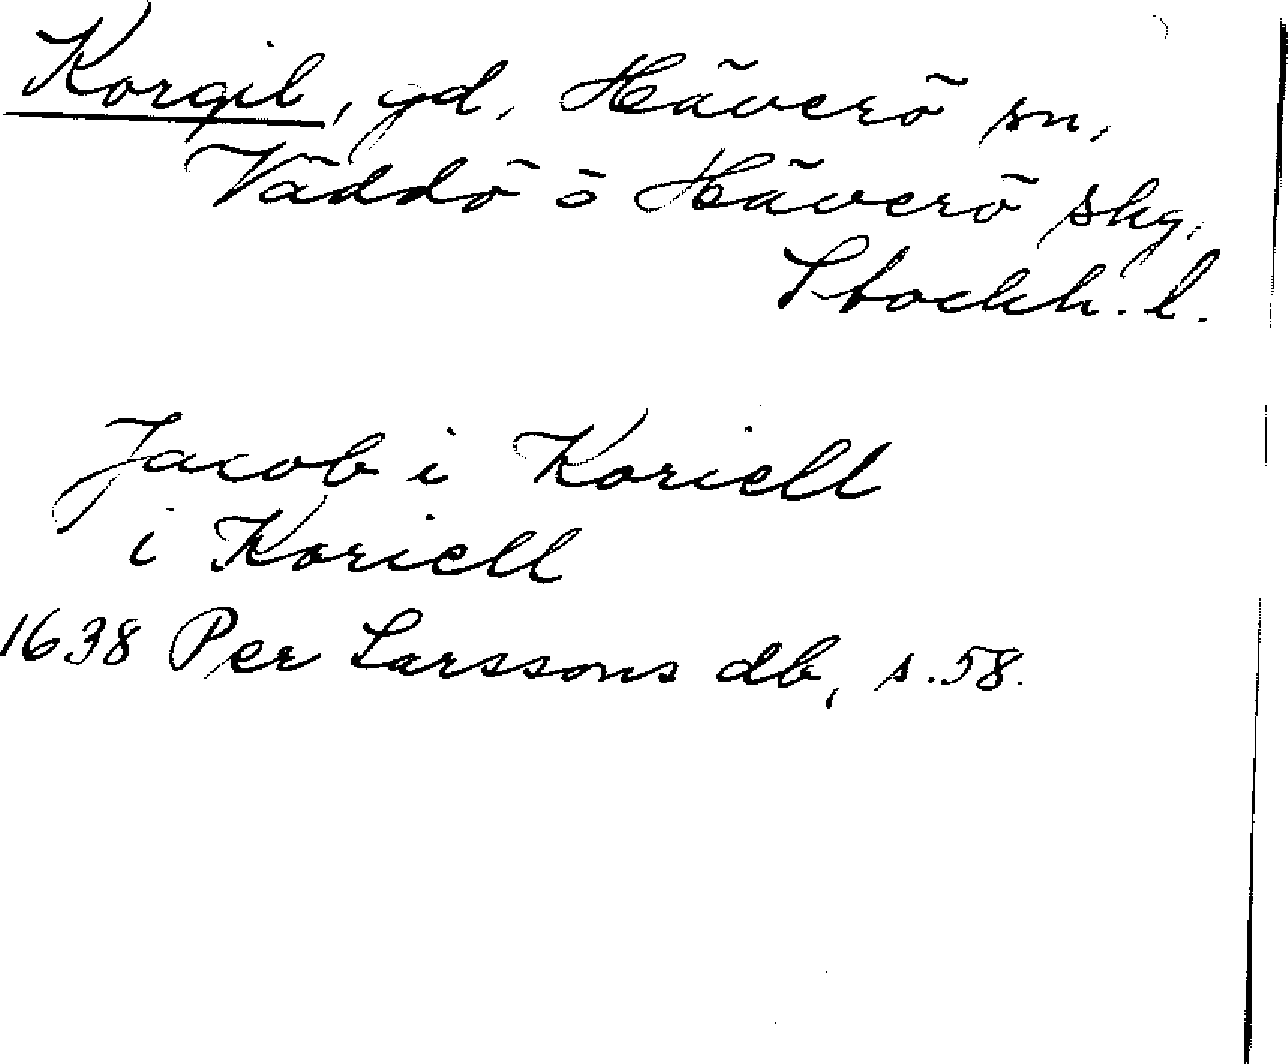 Korgil, gd, Häverö sn,
Väddö o Häverö skg,
Stockh. l.
Jacob i Koriell
i Koriell
1638 Per Larssons db, s. 58.